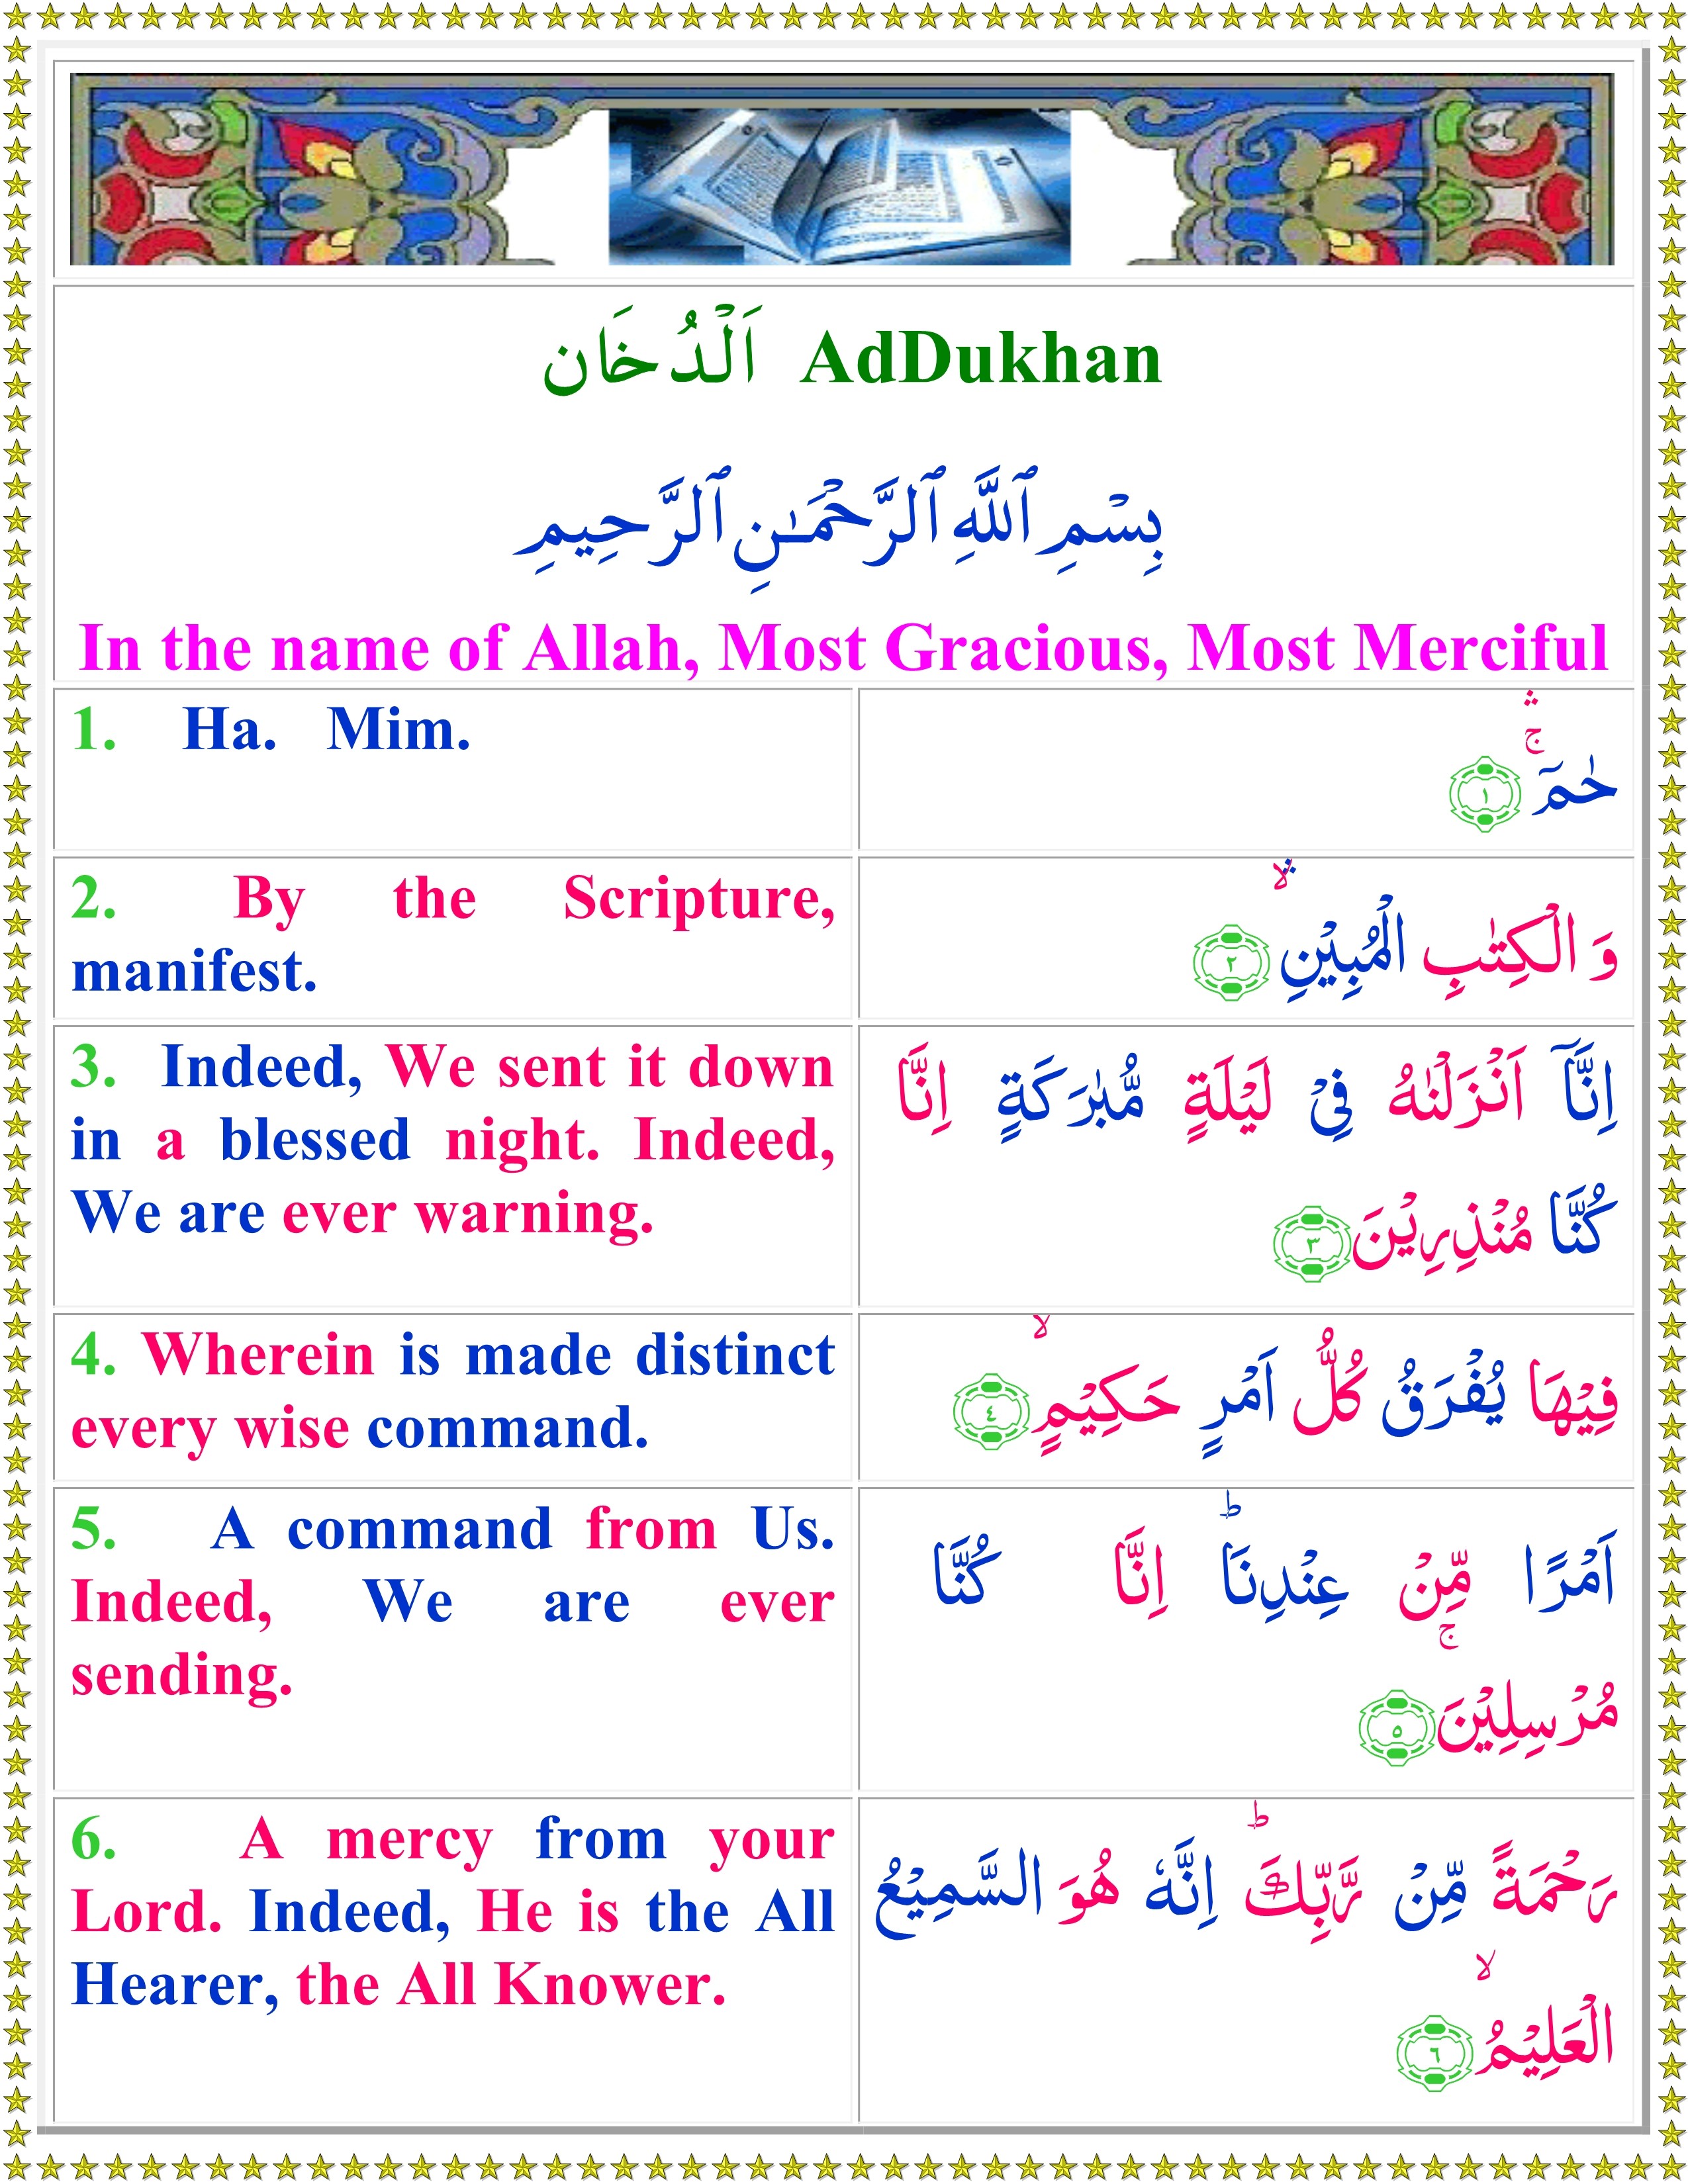 اَلْدُخَان AdDukhan
بِسْمِ ٱللَّهِ ٱلرَّحْمَـٰنِ ٱلرَّحِيمِ
In the name of Allah, Most Gracious, Most Merciful
1. Ha. Mim.
حٰمٓ ۚۛ ﴿۱﴾
2. By the Scripture,
manifest.
وَ الْكِتٰبِ الْمُبِيْنِ ۙۛ ﴿۲﴾
3. Indeed, We sent it down
in a blessed night. Indeed,
We are ever warning.
اِنَّاۤ اَنْزَلْنٰهُ فِىْ لَيْلَةٍ مُّبٰرَكَةٍ اِنَّا
كُنَّا مُنْذِرِيْنَ ﴿۳﴾
4. Wherein is made distinct
every wise command.
فِيْهَا يُفْرَقُ كُلُّ اَمْرٍ حَكِيْمٍۙ ﴿٤﴾
5. A command from Us.
Indeed, We are ever
sending.
اَمْرًا مِّنْ عِنْدِنَاؕ اِنَّا كُنَّا
مُرْسِلِيْنَۚ ﴿۵﴾
6. A mercy from your
Lord. Indeed, He is the All
Hearer, the All Knower.
رَحْمَةً مِّنْ رَّبِّكَؕ اِنَّهٗ هُوَ السَّمِيْعُ
الْعَلِيْمُۙ ﴿٦﴾